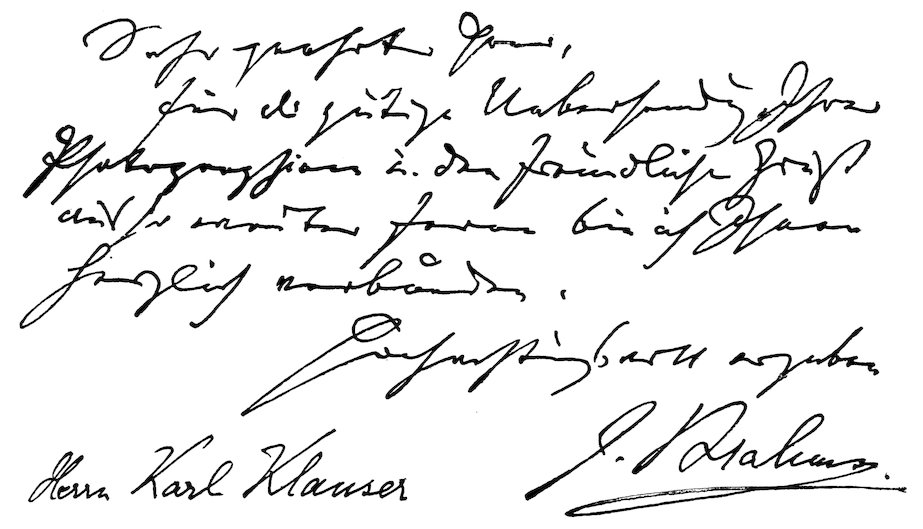 Sehr geehrter Herr,
für die gütige Uebersendg Ihrer
Photographien u. den freundlichen Gruß
aus so weiter Ferne bin ich Ihnen
herzlich verbunden.
Hochachtungsvoll ergeben
Herrn Karl Klauser
J. Brahms.